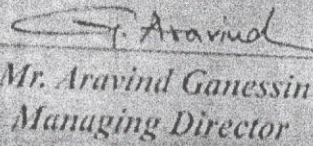 G. Aravind
Mr. Aravind Ganessin
Managing Director